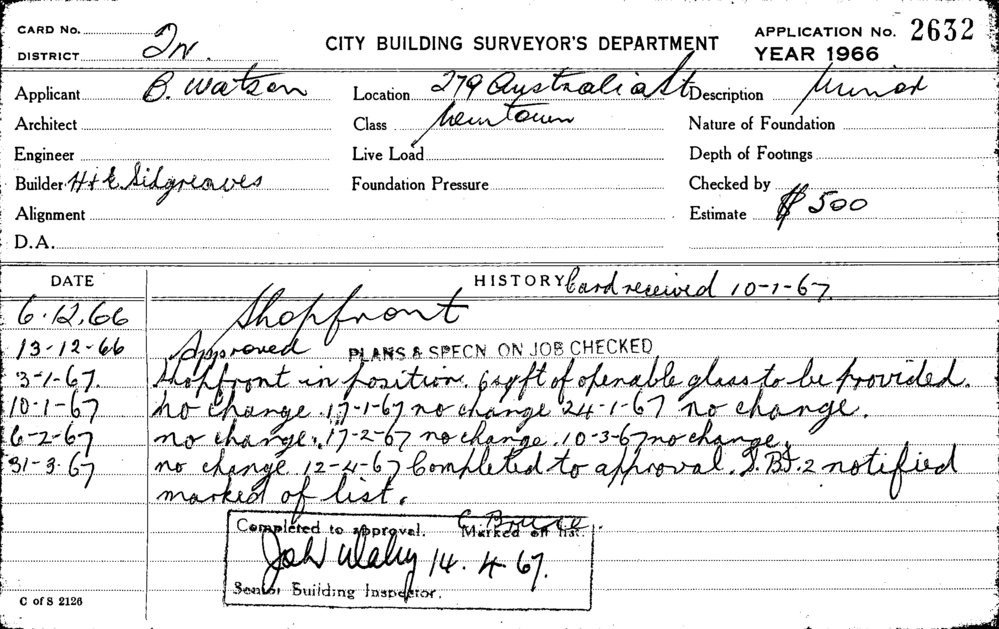 CARD No.
DISTRICT
CITY BUILDING SURVEYOR'S DEPARTMENT
APPLICATION No. 2632
YEAR 1966
Applicant B. Watson
Location 279 Australia St
Description Minor
Architect
Class Newtown
Nature of Foundation
Engineer
Live Load
Depth of Footings
Builder H & E Sidgreaves
Foundation Pressure
Checked by
Alignment
Estimate $ 500
D.A.
DATE
HISTORY Card received 10-1-67
6.12.66 Shopfront
13-12-66 Approved PLANS & SPECN ON JOB CHECKED
3-1-67. Shopfront in position. 6 sq ft of openable glass to be provided.
10-1-67 no change. 17-1-67 no change 24-1-67 no change.
6-2-67 no change. 17-2-67 no change. 10-3-67 no change.
31-3-67 no change. 12-4-67 Completed to approval. notified
marked of list.
Completed to approval. Marked off list.
14.4.67.
Senior Building Inspector.
C of S 2126